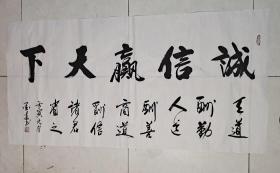 誠信贏天下
天道
酬勤
人道
酬善
商道
酬信
諸君
省之